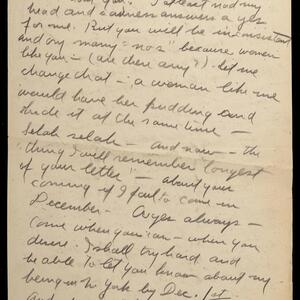 from you? I at least nod my
head and answer a yes
for me. But you will be inconsistent
and my many "no's" because women
like you - (are there any?). Let me
change that - a woman like me
would have her pudding and
hide it at the same time -
Selah selah - and now - the
"thing I will remember longest
of your letter" - about your
coming if I fail to come in
December - Oyes always -
come when you can - when you
desire. I shall try hard and
be able to let you know about my
being in York by Dec. 1st